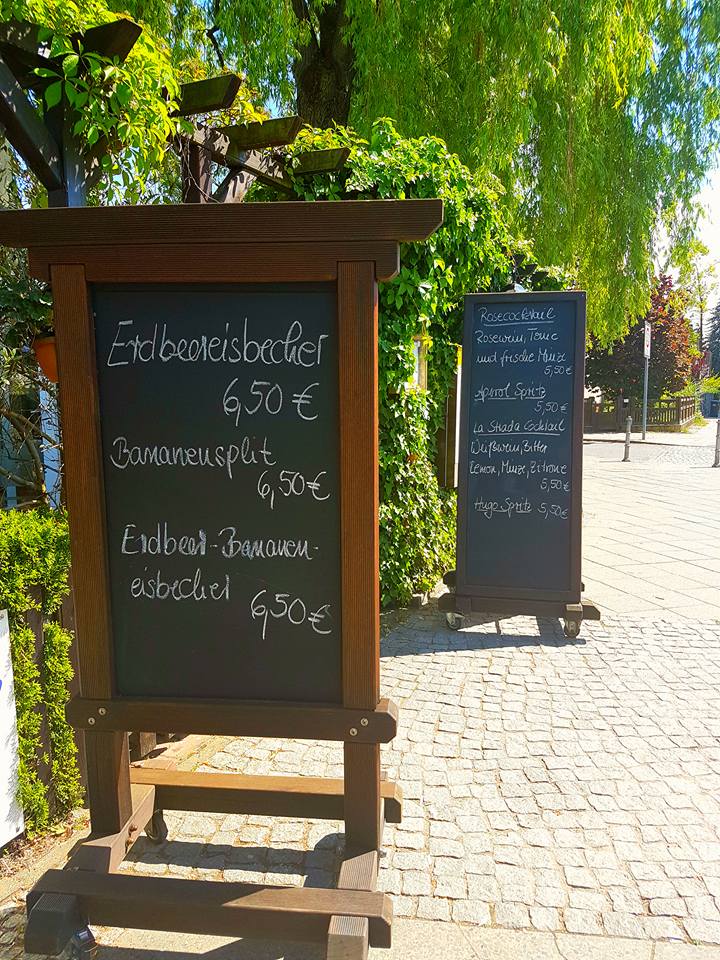 Erdbeereisbecher
6,50 €
Bananensplit
6,50 €
Erdbeer-Bananen-
eisbecher
6,50 €
Rosecocktail
Rosewein, Tonic
und frische Minze
5,50€
Aperol Spritz
5,50€
La Strada Cocktail
Weißwein, Bitter
Lemon, Minze, Zitrone
5,50€
Hugo Spritz 5,50€